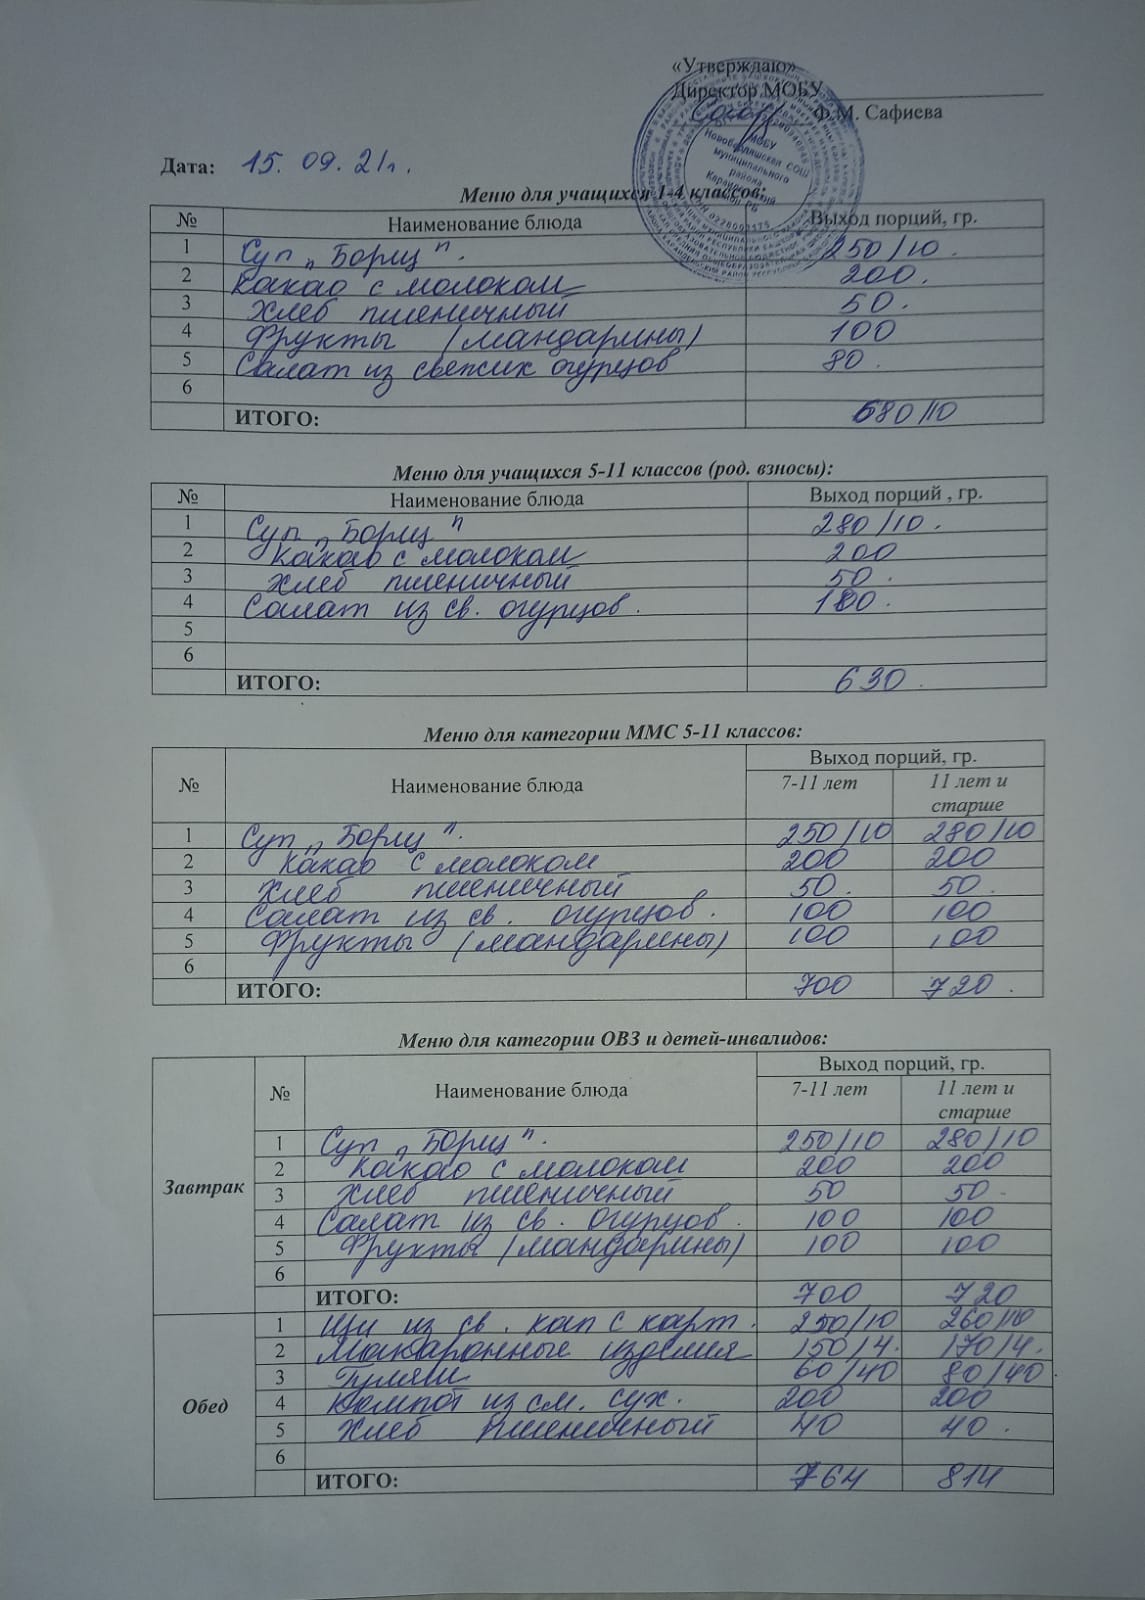 «Утверждаю»
Директор МОБУ
Ф.М. Сафиева
МОБУ
Новобурляшская СОШ
муниципального
района
Караидельский
район РБ
Дата: 15.09.21г.
Меню для учащихся 1-4 классов:
№ Наименование блюда Выход порций, гр.
1 Суп „Борщ". 250/10.
2 Какао с молоком 200.
3 Хлеб пшеничный 50.
4 Фрукты (мандарины) 100
5 Салат из свежих огурцов 80.
6
ИТОГО: 680/10
Меню для учащихся 5-11 классов (род. взносы):
№ Наименование блюда Выход порций , гр.
1 Суп „Борщ" 280/10.
2 Какао с молоком 200
3 Хлеб пшеничный 50.
4 Салат из св. огурцов. 100.
5
6
ИТОГО: 630.
Меню для категории ММС 5-11 классов:
№ Наименование блюда Выход порций, гр.
7-11 лет 11 лет и
старше
1 Суп „Борщ". 250/10 280/10
2 Какао с молоком 200 200
3 Хлеб пшеничный 50. 50.
4 Салат из св. огурцов. 100 100
5 Фрукты (мандарины) 100 100
6
ИТОГО: 700 720.
Меню для категории ОВЗ и детей-инвалидов:
№ Наименование блюда Выход порций, гр.
7-11 лет 11 лет и
старше
Завтрак
1 Суп „Борщ". 250/10 280/10
2 Какао с молоком 200 200
3 Хлеб пшеничный 50 50.
4 Салат из св. огурцов. 100 100
5 Фрукты (мандарины) 100 100
6
ИТОГО: 700 720
Обед
1 Щи из св. кап с карт. 250/10 260/10
2 Макаронные изделия 150/4. 170/4.
3 Гуляш 60/40 80/40.
4 Компот из см. сух. 200 200
5 Хлеб пшеничный 40 40.
6
ИТОГО: 764 814